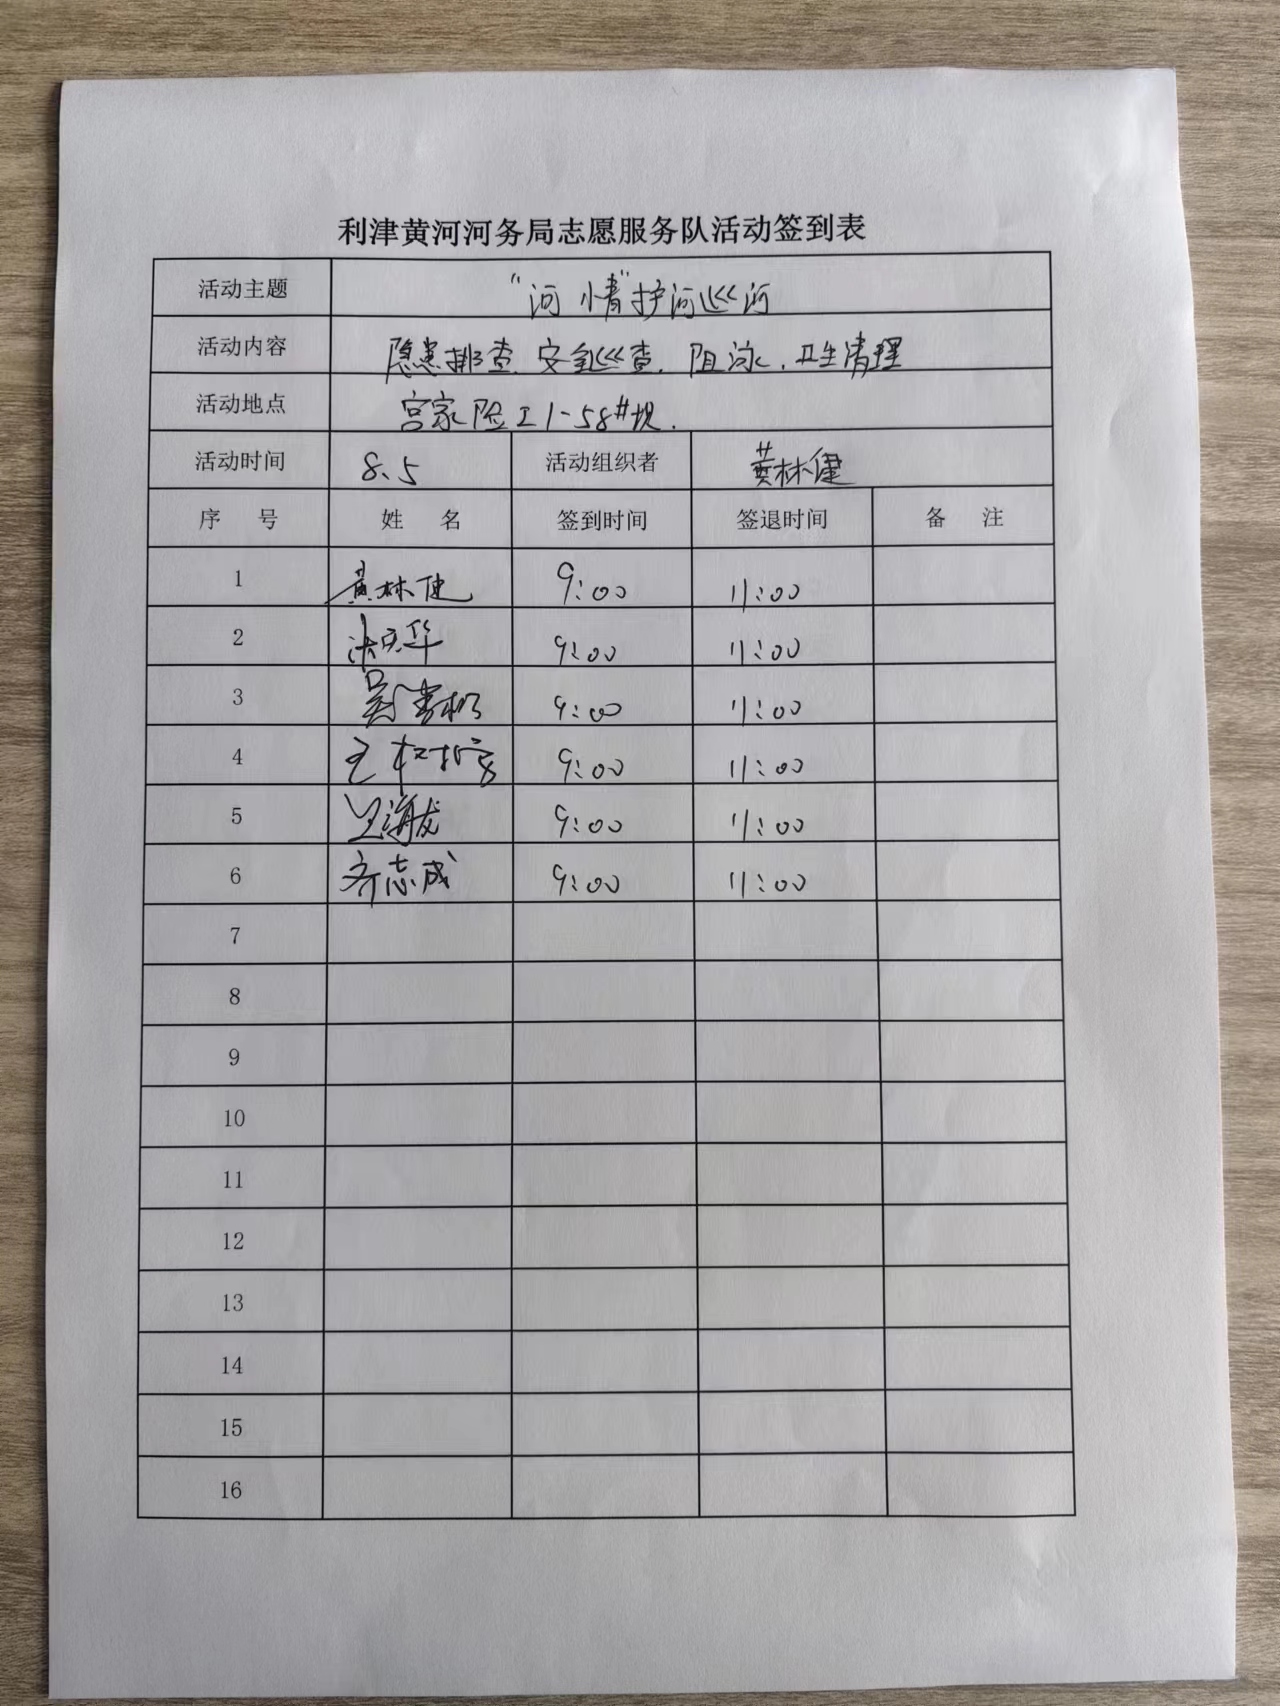 利津黄河河务局志愿服务队活动签到表
活动主题 “河情”护河巡河
活动内容 隐患排查、安全巡查、阻泳、卫生清理
活动地点 宫家险工1-58#坝.
活动时间 8.5 活动组织者 黄林健
序 号 姓 名 签到时间 签退时间 备 注
1 黄林健 9:00 11:00
2 9:00 11:00
3 9:00 11:00
4 9:00 11:00
5 王海龙 9:00 11:00
6 齐志成 9:00 11:00
7
8
9
10
11
12
13
14
15
16